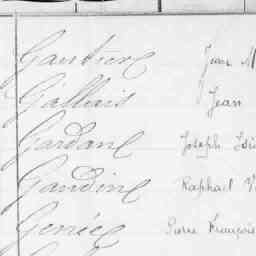 Gautier Jean M
Gallais Jean
Gardane Joseph Isi
Gaudine Raphael V
Geniée Pierre François